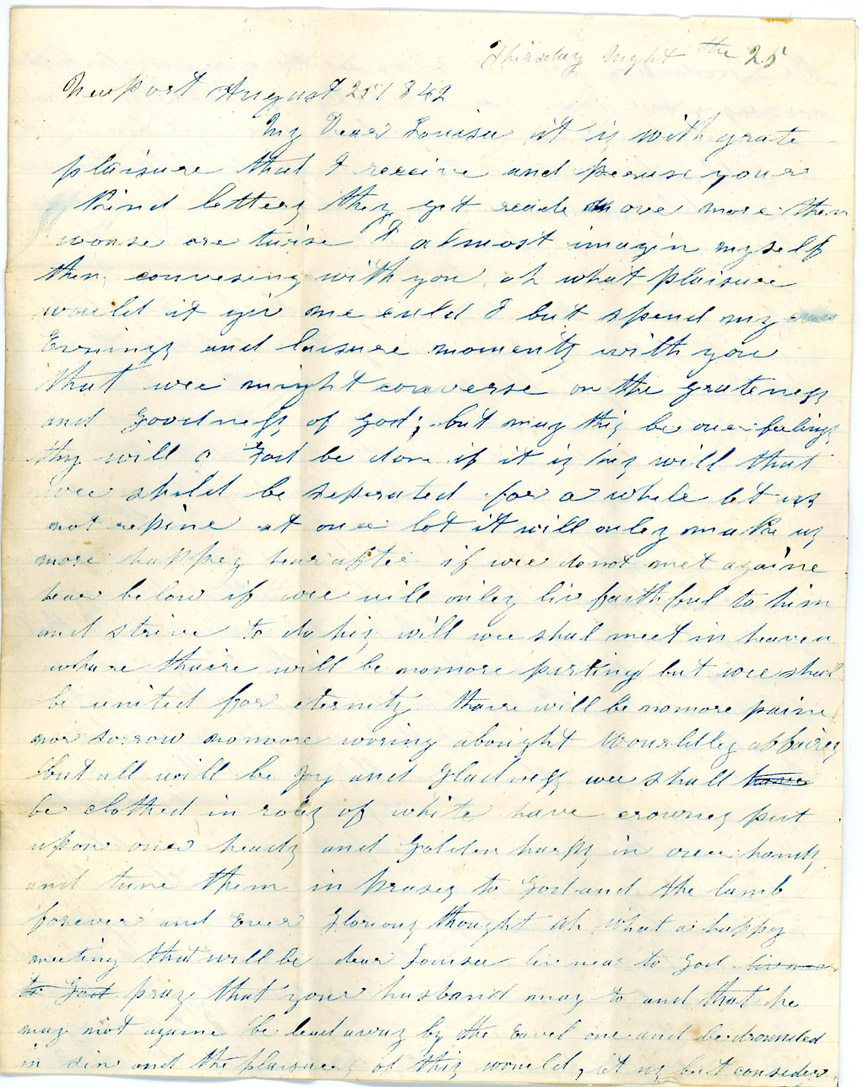 Thirsday night the 25
Newport August 25 1842
My Dear Louisa it is with grate
plaisure that I receive and peruse your
kind letters they get reade ove more then
wonse ore twise I almost imagin myself
then convesing with you ah what plaisure
would it giv me culd I but spend my
Evnings and laisure moments with you
that wee might converse on the grateness
and goodness of god; but may this be ouer feelings
thy will o God be don if it is his will that
wee shuld be seperated for a while let us
not repine at ouer lot it will onley make us
more happey hearafter if wee do not met againe
hear below if wee will onley liv faithful to him
and strive to do his will wee shal meet in heaven
whare thaire will be nomore pirting but wee shal
be united for eternity thare will be nomore paine
nor sorrow nomore woring abought wourldley affaires
but all will be joy and gladness wee shall have
be clothed in robes of white have crownes put
upon ouer heads and golden harps in ouer hands
and tune them in prases to God and the lamb
forever and ever glorious thought ah what a happy
meeting that will be dear Louisa liv near to god liv near
to god pray that your husband may to and that he
may not againe be lead away by the Eavel one and be drounded
in sin and the plaisures of this would, let us but consider,